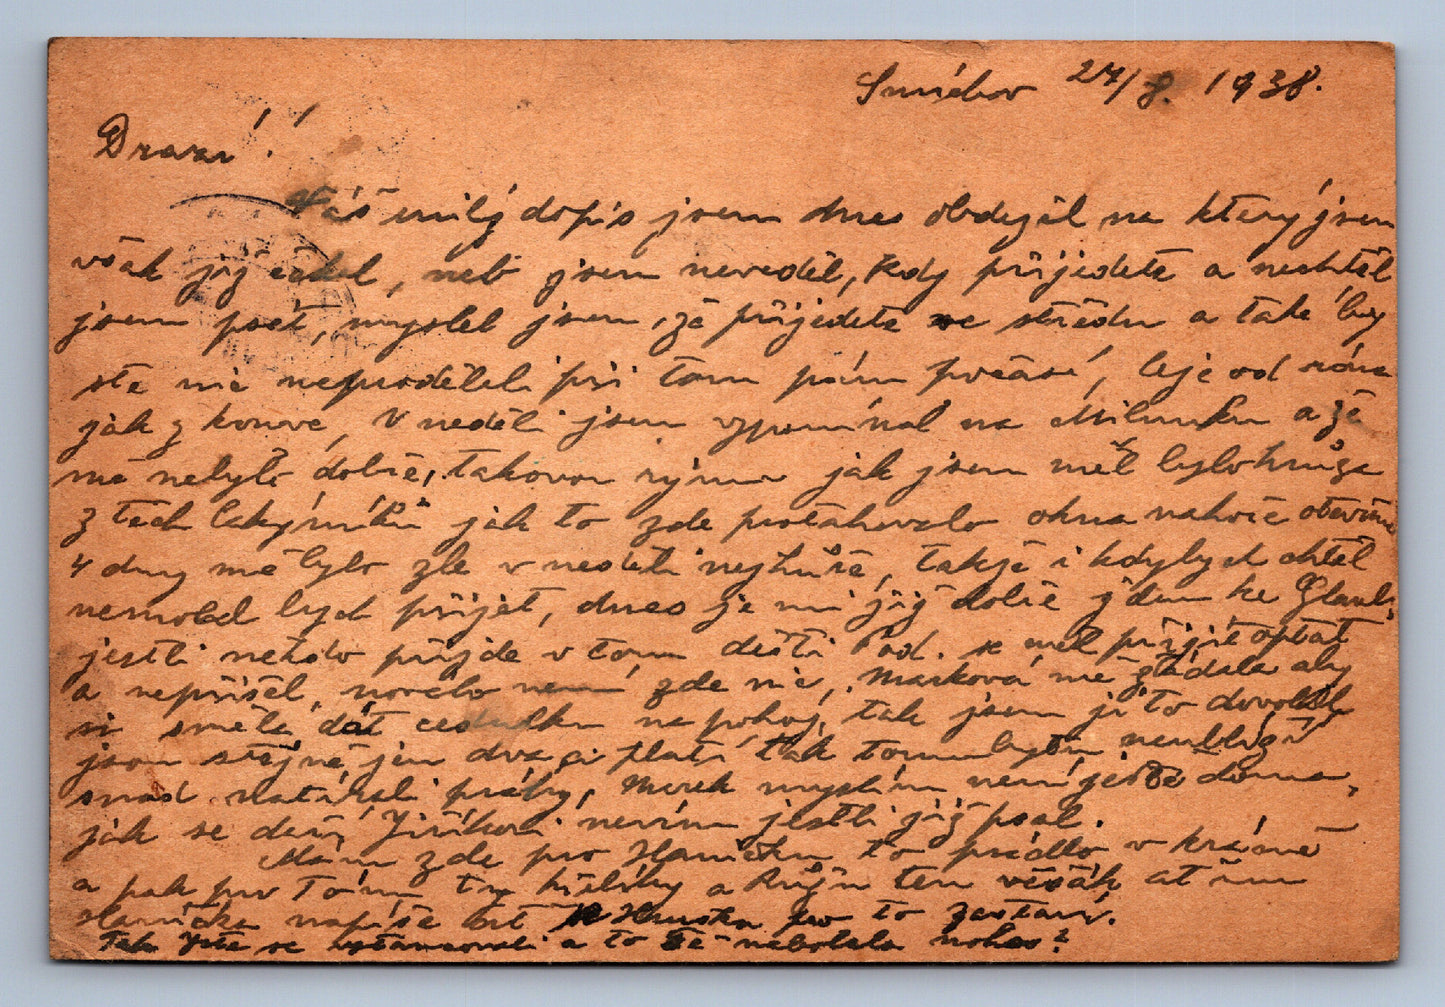 Smíchov 27/8. 1938.
Drazí!
Váš milý dopis jsem dnes obdržel na který jsem
však již čekal, neb jsem nevěděl, kdy přijedete a nechtěl
jsem psát, myslel jsem, že přijedete ve středu a také by
ste nic neprodělali při tom psím počasí, leje od rána
jak z konve, V neděli jsem vzpomínal na Milunku a že
mě nebylo dobře, takovou rýmu jak jsem měl bylo hrůza
z těch jak to zde protahovalo okna nahoře otevřené
4 dny mě bylo zle v neděli nejhůře, takže i kdybych chtěl
nemohl bych přijet, dnes je mi již dobře jdu ke
jestli někdo přijde v tom dešti Pod. se měl přijít optat
a nepřišel, nového není zde nic, Marková mě žádala aby
si směla dát cedulku na pokoj, tak jsem jí to dovolil
jsou stejně jen dva a platí tak tomu bytu neublíží
snad natírali prahy, Marek myslím není ještě doma,
jak se daří Jiříkovi nevím jestli již psal.
Mám zde pro Haničku to prádlo v krámě
a pak pro Tónu ty a ten věšák, ať mi
Hanička napíše ať Hruška pro to zastaví.
Tak jste se a to Tě nebolela noha?